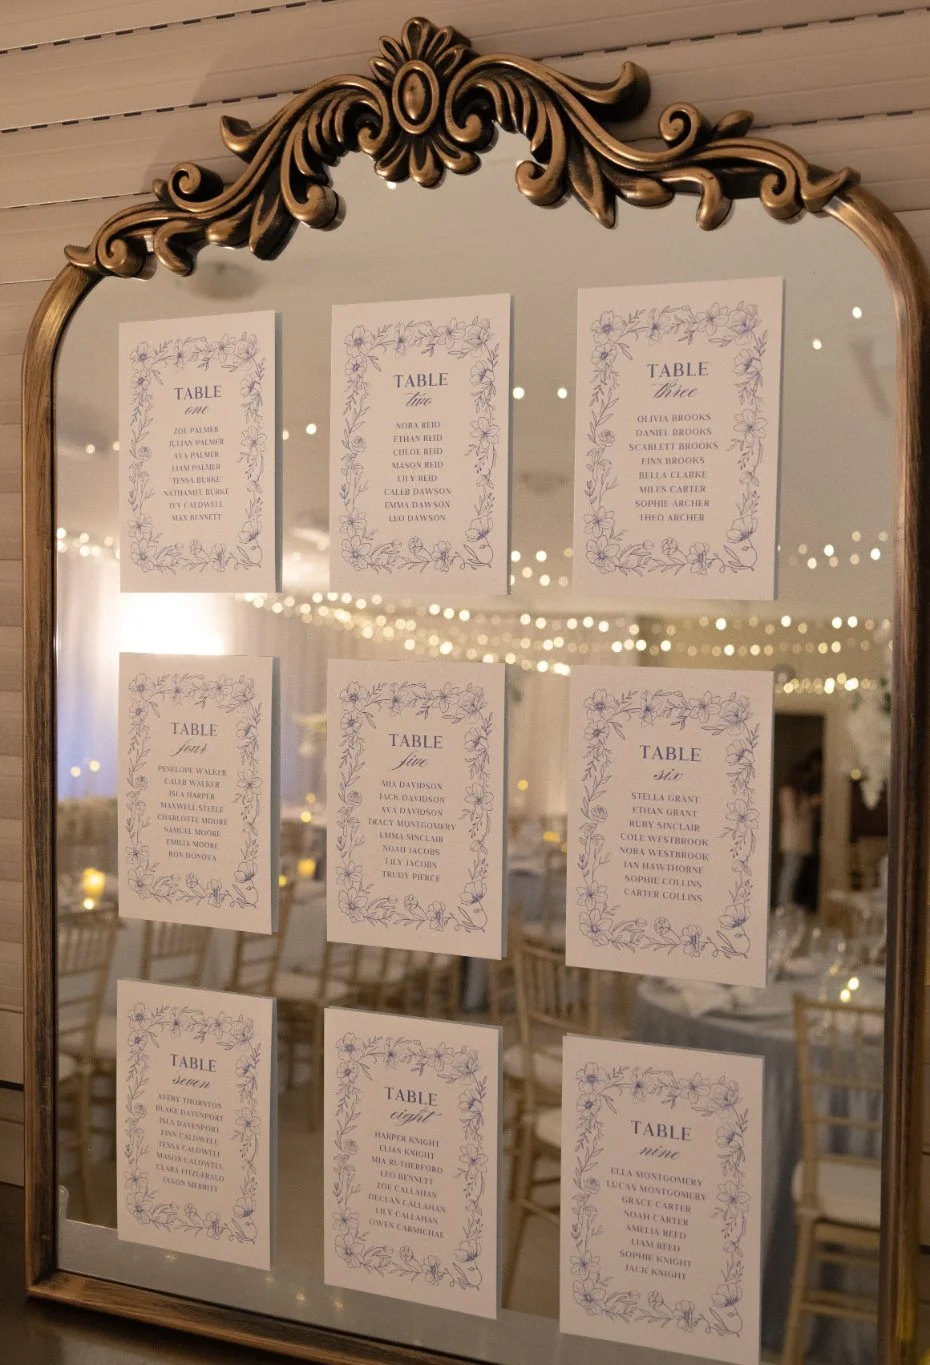 TABLE
one
ZOE PALMER
JULIAN PALMER
AVA PALMER
LIAM PALMER
TESSA BURKE
NATHANIEL BURKE
IVY CALDWELL
MAX BENNETT
TABLE
two
NORA REID
ETHAN REID
CHLOE REID
MASON REID
LILY REID
CALEB DAWSON
EMMA DAWSON
LEO DAWSON
TABLE
three
OLIVIA BROOKS
DANIEL BROOKS
SCARLETT BROOKS
FINN BROOKS
BELLA CLARKE
MILES CARTER
SOPHIE ARCHER
THEO ARCHER
TABLE
four
PENELOPE WALKER
CALEB WALKER
ISLA HARPER
MAXWELL STEELE
CHARLOTTE MOORE
SAMUEL MOORE
EMILIA MOORE
RON DONOVA
TABLE
five
MIA DAVIDSON
JACK DAVIDSON
AVA DAVIDSON
TRACY MONTGOMERY
EMMA SINCLAIR
NOAH JACOBS
LILY JACOBS
TRUDY PIERCE
TABLE
six
STELLA GRANT
ETHAN GRANT
RUBY SINCLAIR
COLE WESTBROOK
NORA WESTBROOK
IAN HAWTHORNE
SOPHIE COLLINS
CARTER COLLINS
TABLE
seven
AVERY THORNTON
BLAKE DAVENPORT
ISLA DAVENPORT
FINN CALDWELL
TESSA CALDWELL
MASON CALDWELL
CLARA FITZGERALD
JAXON MERRITT
TABLE
eight
HARPER KNIGHT
ELIAS KNIGHT
MIA RUTHERFORD
LEO BENNETT
ZOE CALLAHAN
DECLAN CALLAHAN
LILY CALLAHAN
OWEN CARMICHAE
TABLE
nine
ELLA MONTGOMERY
LUCAS MONTGOMERY
GRACE CARTER
NOAH CARTER
AMELIA REED
LIAM REED
SOPHIE KNIGHT
JACK KNIGHT